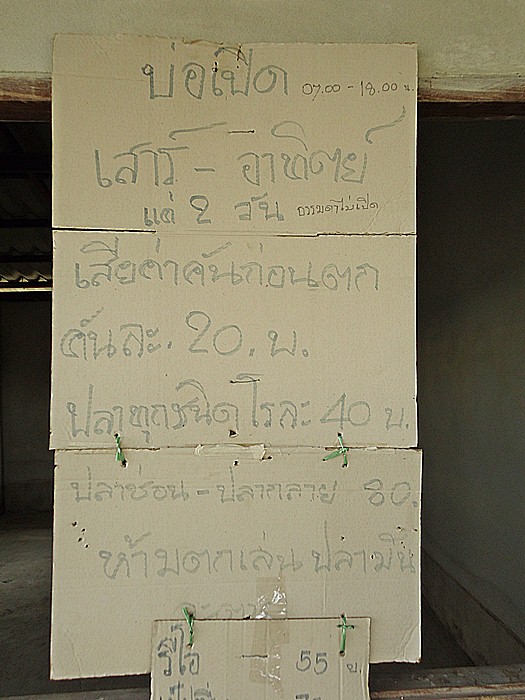 บ่อเปิด 07.00 - 18.00 น.
เสาร์ - อาทิตย์
แค่ 2 วัน ธรรมดาไม่เปิด
เสียค่าคันก่อนตก
คันละ. 20. บ.
ปลาทุกชนิดโรละ 40 บ.
ปลาช่อน - ปลากลาย 80.
ห้ามตกเล่น ปลามีน
รีโอ - 55 บ.